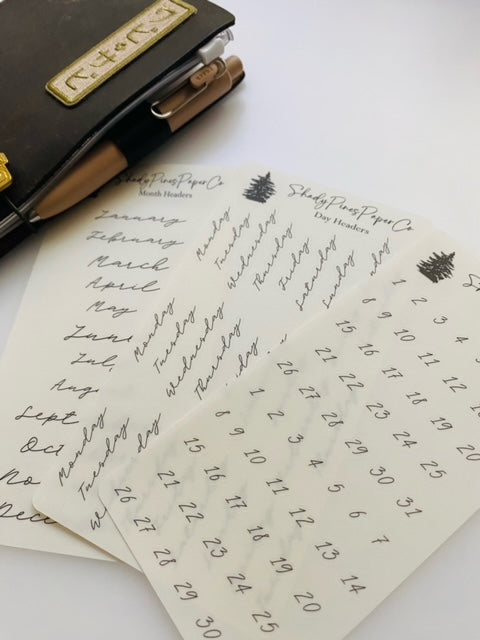 ShadyPinesPaperCo
Month Headers
January
February
March
April
May
June
Jul
Aug
Sept
Oct
No
Dec
ShadyPinesPaperCo
Day Headers
Monday
Tuesday
Wednesday
Thursday
Friday
Saturday
Sunday
Monday
Tuesday
Wednesday
Thursday
day
Monday
Tuesday
W
day
1 2 3 4
8 9 10 11 12
15 16 17 18 19 20
21 22 23 24 25
26 27 28 29 30 31
1 2 3 4 5 6 7
8 9 10 11 12 13 14
15 16 17 18 19 20
21 22 23 24 25
26 27 28 29 30